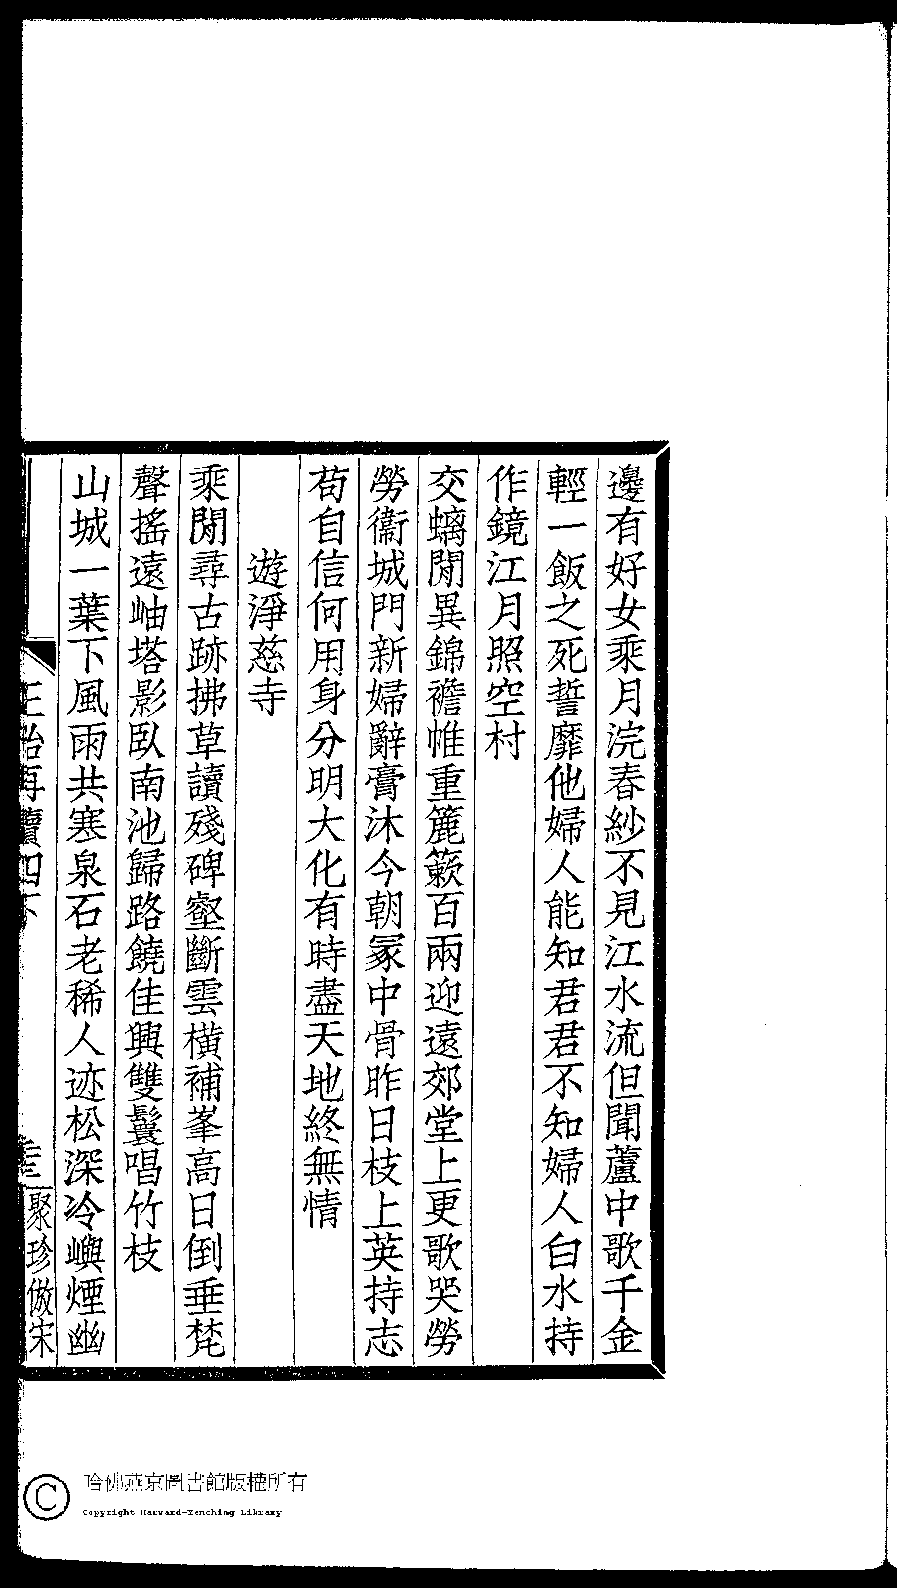 邊有好女乘月浣春紗不見江水流但聞蘆中歌千金
輕一飯之死誓靡他婦人能知君君不知婦人白水持
作鏡江月照空村
交螭閒異錦襜帷重簏簌百兩迎遠郊堂上更歌哭勞
勞衞城門新婦辭膏沐今朝冢中骨昨日枝上英持志
苟自信何用身分明大化有時盡天地終無情
遊淨慈寺
乘閒尋古跡拂草讀殘碑壑斷雲橫補峯高日倒垂梵
聲搖遠岫塔影臥南池歸路饒佳興雙鬟唱竹枝
山城一葉下風雨共寒泉石老稀人迹松深冷嶼煙幽
再續四下
聚珍倣宋
哈佛燕京圖書館版權所有
Copyright Harvard-Yenching Library